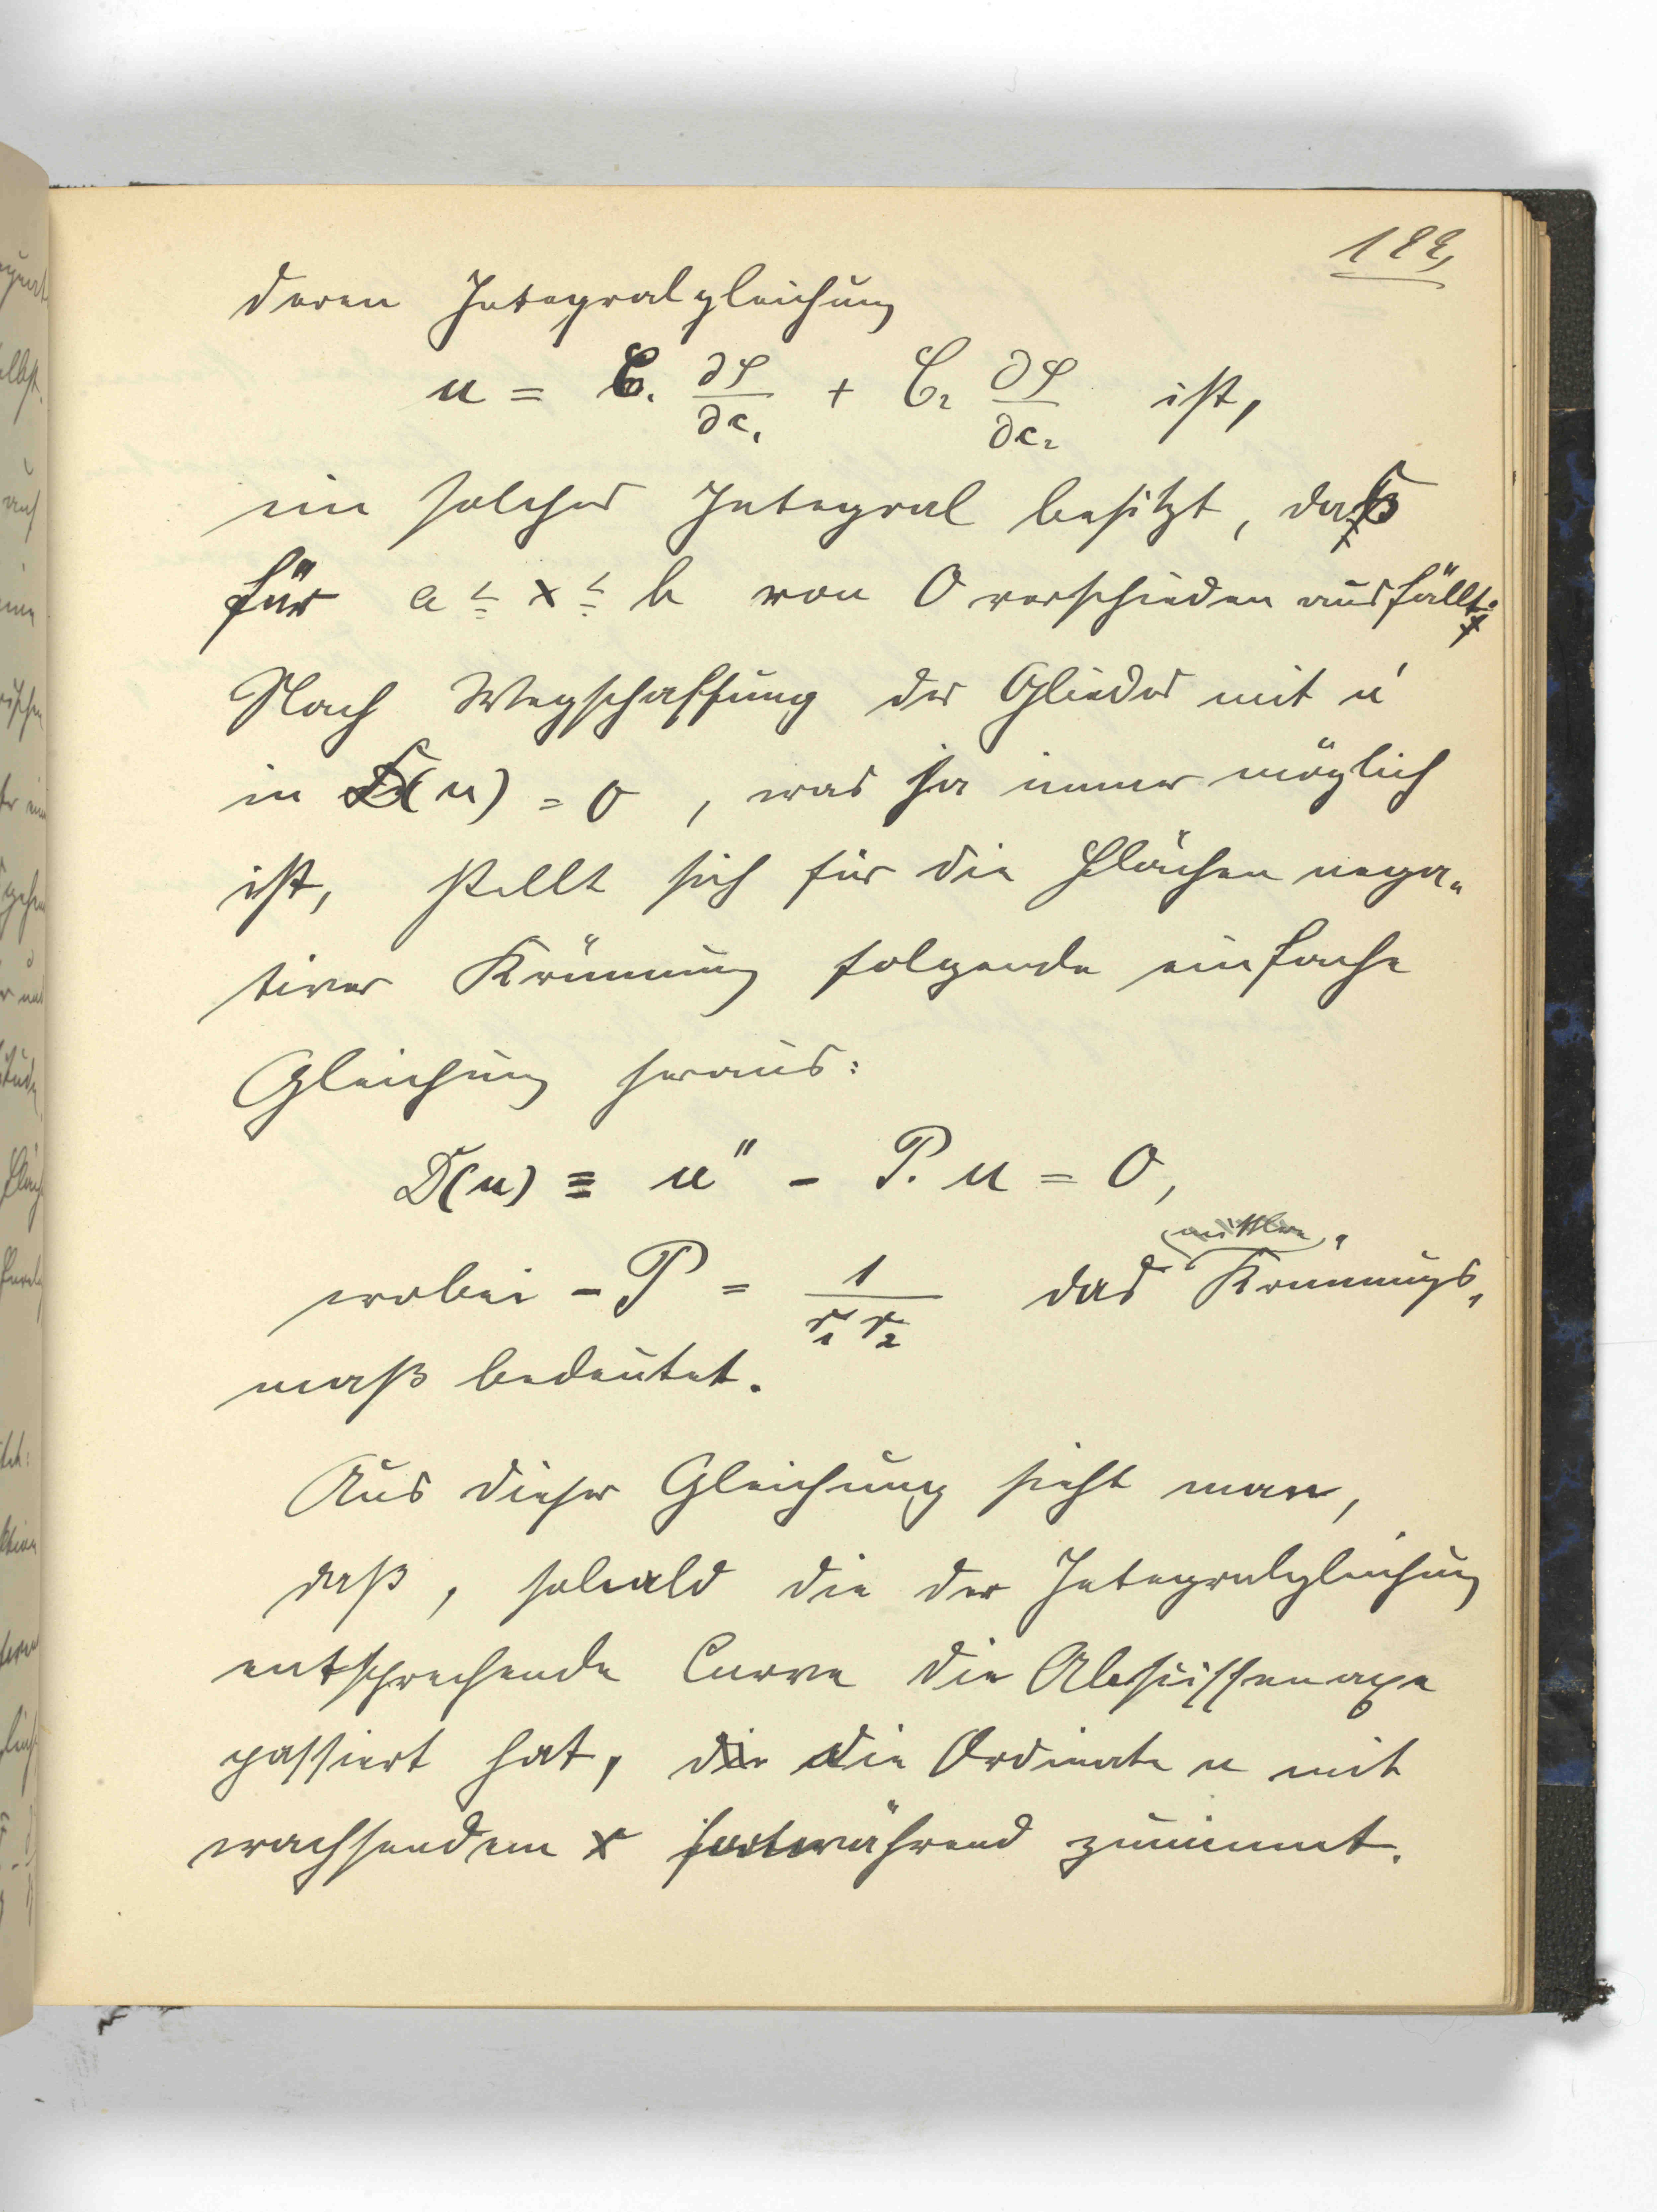 122,
deren Integralgleichung
u = C₁ ∂φ/∂c₁ + C₂ ∂φ/∂c₂ ist,
ein solches Integral besitzt, daß
für a ≤ x ≤ b von 0 verschieden ausfällt.
Nach Wegschaffung des Gliedes mit u'
in D(u) = 0, was ja immer möglich
ist, stellt sich für die Flächen nega-
tiver Krümmung folgende einfache
Gleichung heraus:
D(u) ≡ u'' - P. u = 0,
mittlere
wobei - P = 1/(r₁ r₂) das Krümmungs-
maß bedeutet.
Aus dieser Gleichung sieht man,
daß, sobald die der Integralgleichung
entsprechende Curve die Abscissenaxe
passiert hat, die die Ordinate u mit
wachsendem x fortwährend zunimmt.